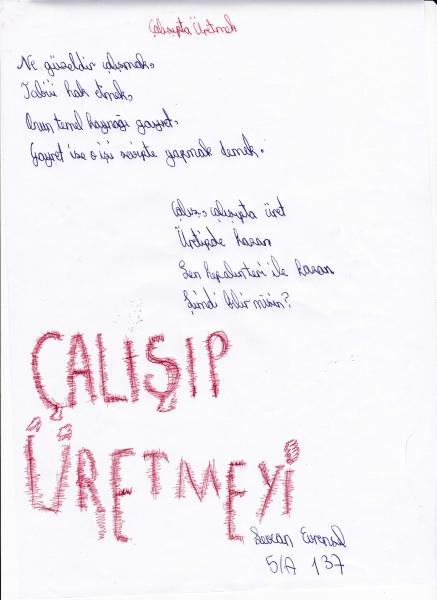 Çalışıpta Üretmek
Ne güzeldir çalışmak,
Tabii hak etmek,
Onun temel kaynağı gayret,
Gayret ise o işi sevipte yapmak demek.
Çalış, çalışıpta üret
Ürtipde kazan
Sen ile kazan
Şimdi bilir misin?
ÇALIŞIP
ÜRETMEYİ
Sevcan
5/A 137